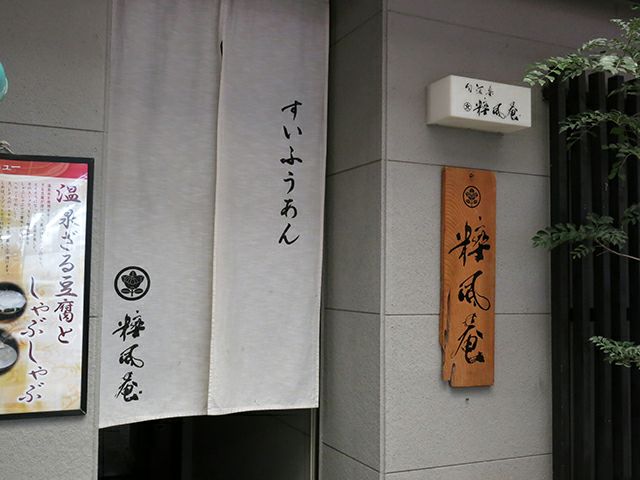 ュー
温泉ざる豆腐と
しゃぶしゃぶ
すいふうあん
粋風庵
粋風庵
粋風庵